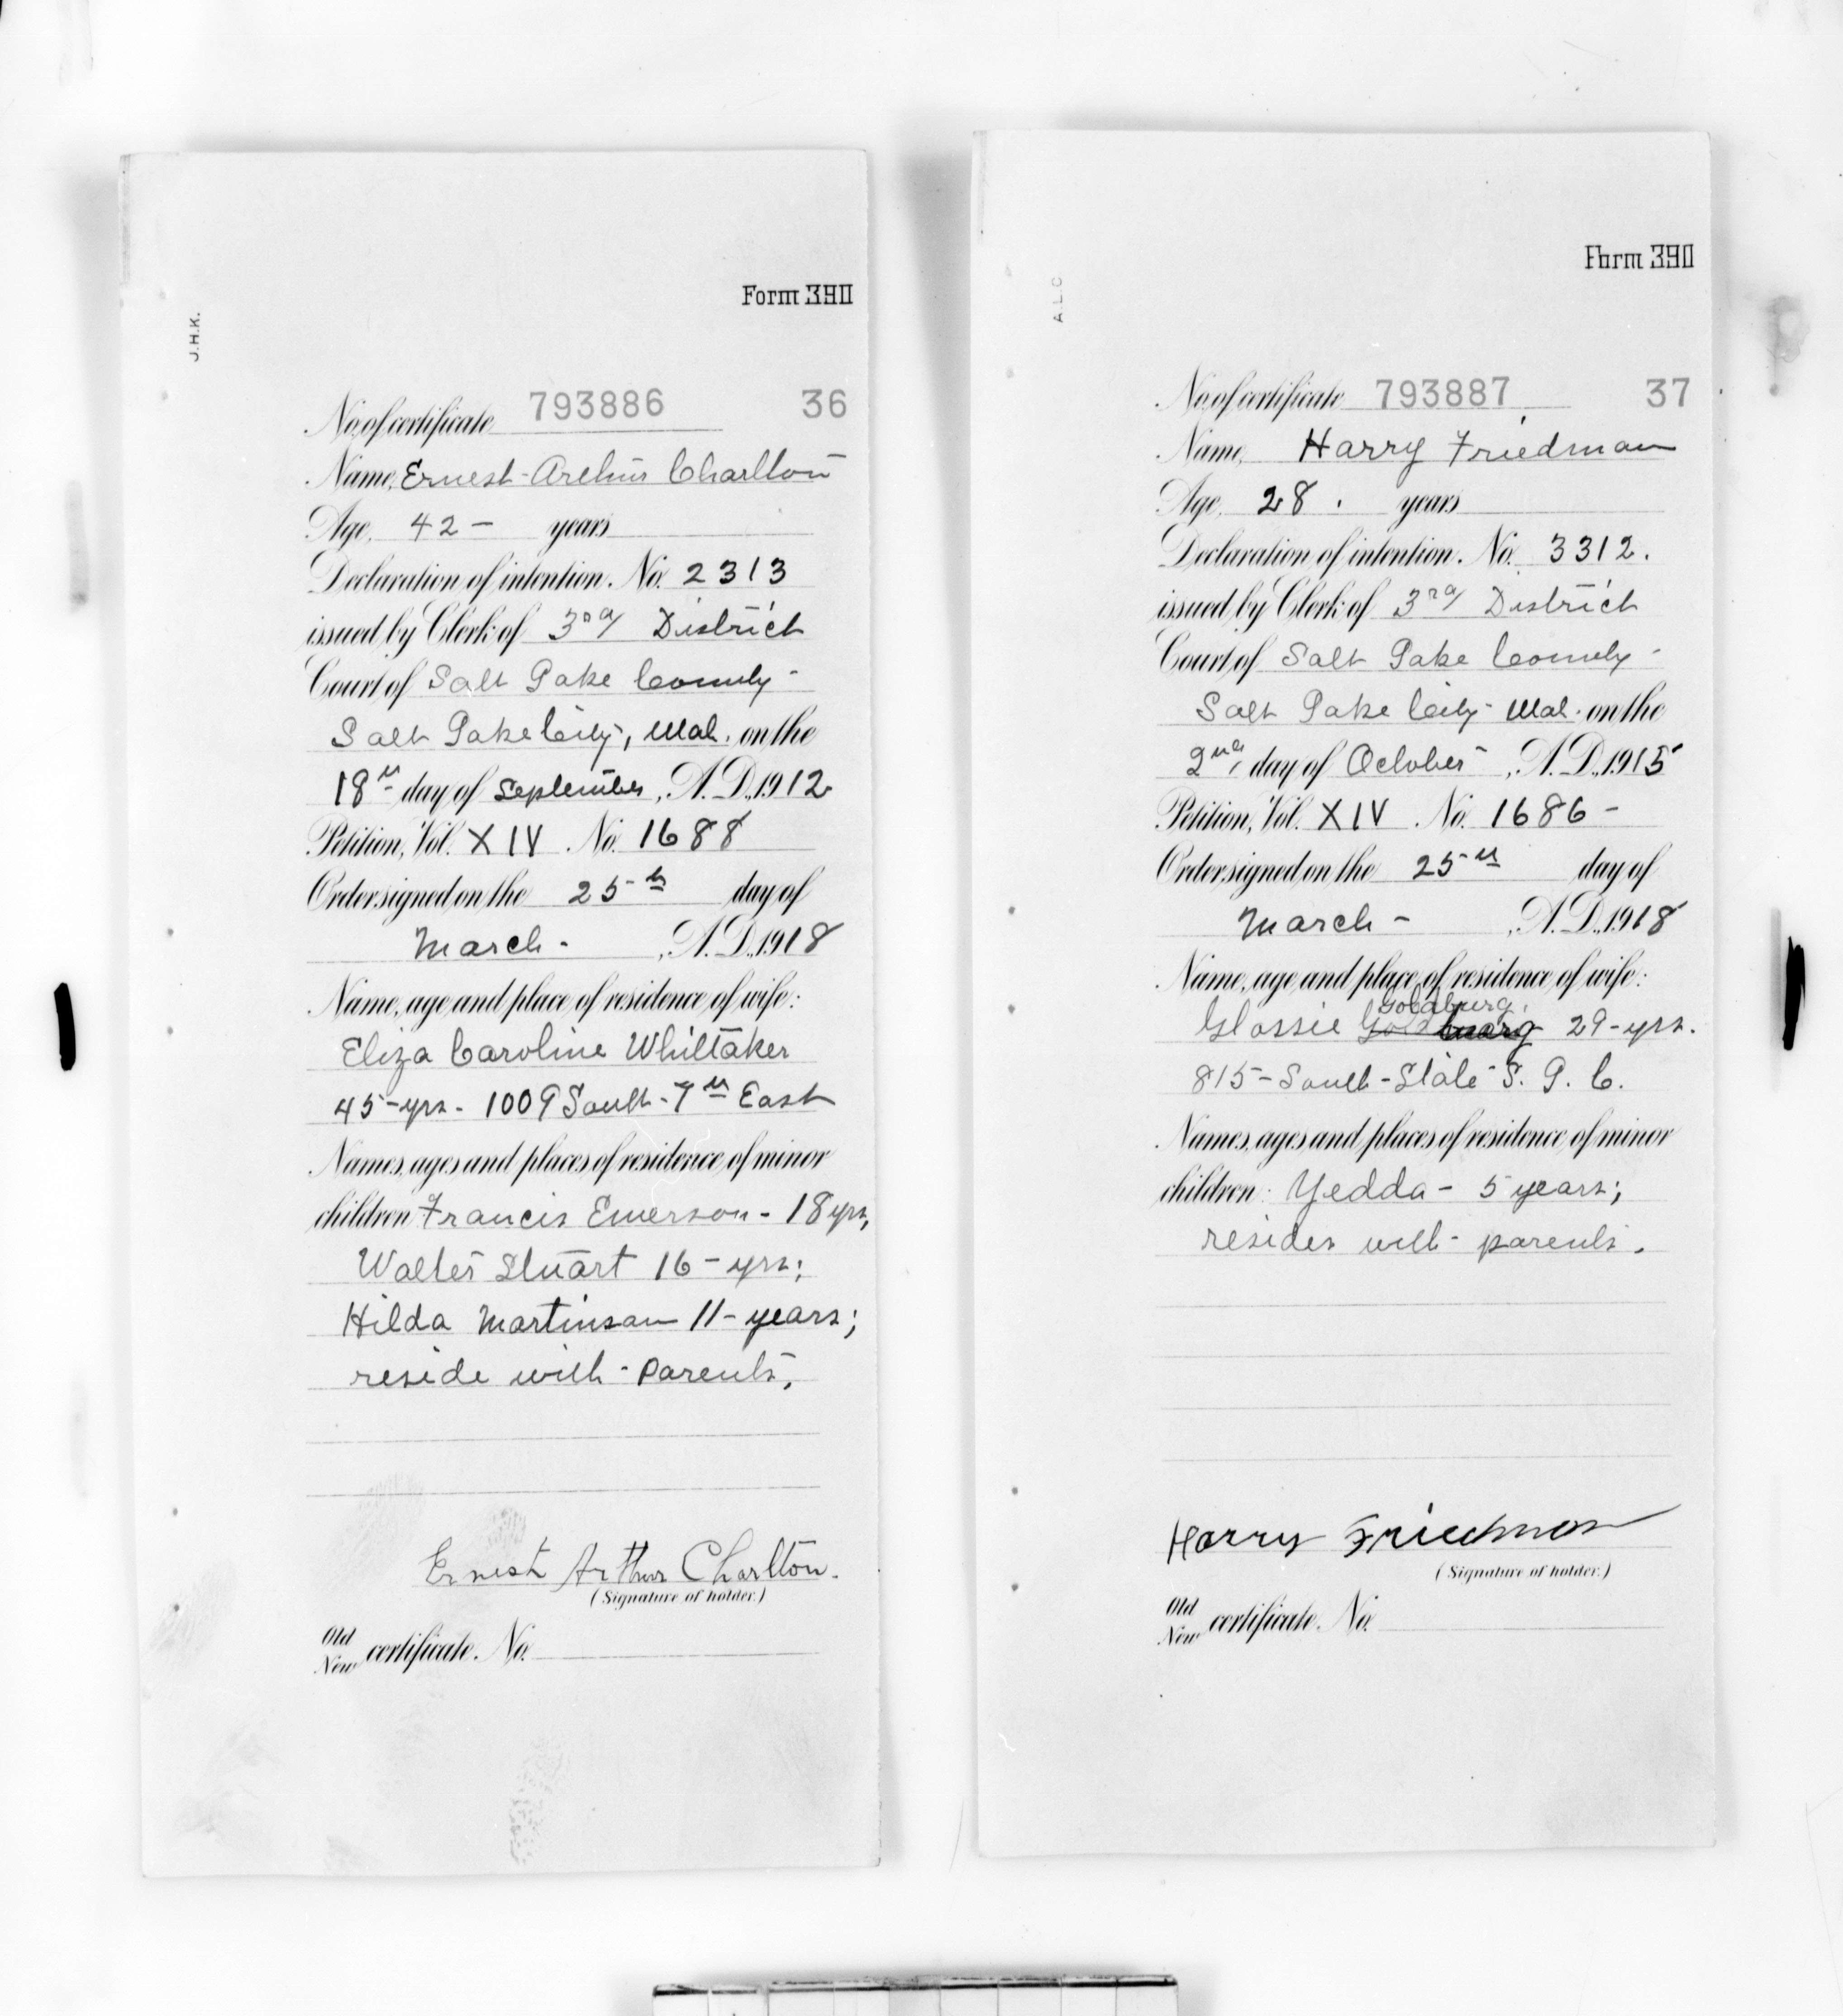 Form 390
J.H.K.
No. of certificate 793886 36
Name, Ernest Arthur Charlton
Age, 42 - years
Declaration of intention, No. 2313
issued by Clerk of 3rd District
Court of Salt Lake County -
Salt Lake City, Utah. on the
18th day of September, A.D., 1912
Petition, Vol. XIV No. 1688
Order signed on the 25th day of
March - , A.D., 1918
Name, age and place of residence of wife:
Eliza Caroline Whittaker
45-yrs - 1009 South - 7th East
Names, ages and places of residence of minor
children Francis Emerson - 18 yrs,
Walter Stuart 16 - yrs;
Hilda Martinson 11 - years;
reside with - parents.
Ernest Arthur Charlton.
(Signature of holder.)
Old
New certificate, No.
Form 390
A.L.C
No. of certificate 793887 37
Name, Harry Friedman
Age, 28 . years
Declaration of intention, No. 3312.
issued by Clerk of 3rd District
Court of Salt Lake County -
Salt Lake City - Utah. on the
2nd day of October - , A.D., 1915
Petition, Vol. XIV No. 1686 -
Order signed on the 25th day of
March - , A.D., 1918
Name, age and place of residence of wife:
Goldburg,
Glossie 29 - yrs.
815 - South - State - S. L. C.
Names, ages and places of residence of minor
children: Yedda - 5 years;
resides with - parents.
Harry Friedman
(Signature of holder.)
Old
New certificate, No.